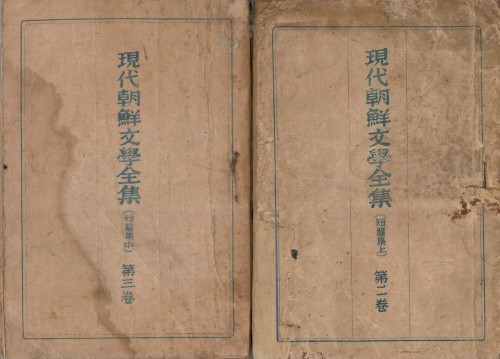 現代朝鮮文學全集
(短篇集中)
第三卷
現代朝鮮文學全集
(短篇集上)
第二卷